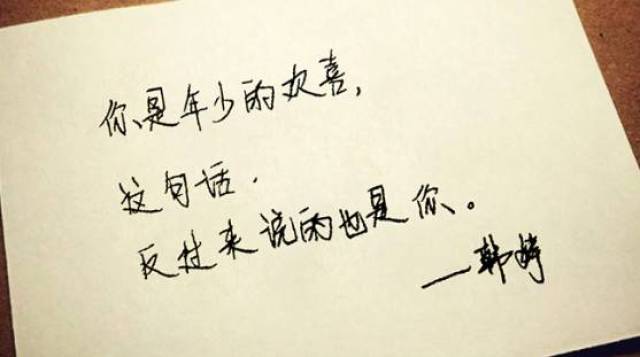 你是年少的欢喜，
这句话.
反过来说的也是你。
—韩婷